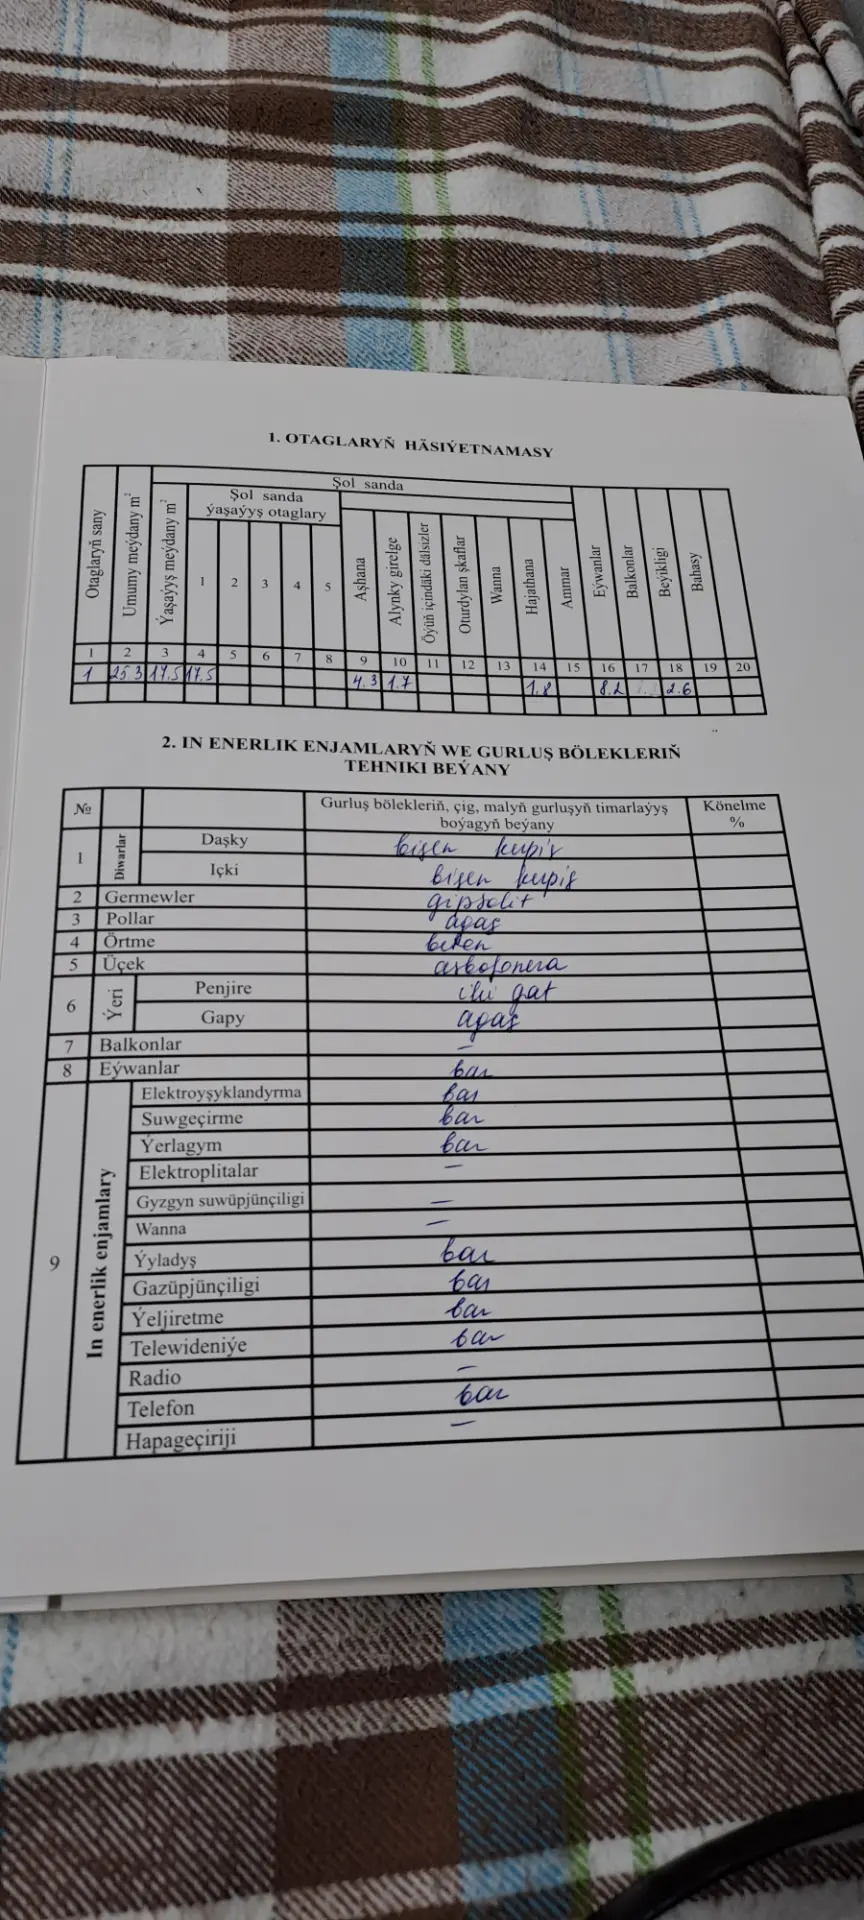 1. OTAGLARYŇ HÄSIÝETNAMASY
Otaglaryň sany
Umumy meýdany m²
Şol sanda
Ýaşaýyş meýdany m²
Şol sanda
ýaşaýyş otaglary
1 2 3 4 5
Aşhana
Alynky girelge
Öýüň içindäki dälsizler
Oturdylan şkaflar
Wanna
Hajathana
Ammar
Eýwanlar
Balkonlar
Beýikligi
Bahasy
1 2 3 4 5 6 7 8 9 10 11 12 13 14 15 16 17 18 19 20
1 25.3 17.5 17.5 4.3 1.7 1.8 8.2 2.6
2. IN ENERLIK ENJAMLARYŇ WE GURLUŞ BÖLEKLERIŇ
TEHNIKI BEÝANY
№ Gurluş bölekleriň, çig, malyň gurluşyň timarlaýyş
boýagyň beýany
Könelme
%
1 Diwarlar Daşky bişen kerpiç
Içki bişen kerpiç
2 Germewler gipsolit
3 Pollar agaç
4 Örtme beton
5 Üçek asbofonera
6 Ýeri Penjire iki gat
Gapy agaç
7 Balkonlar –
8 Eýwanlar bar
9 In enerlik enjamlary Elektroyşyklandyrma bar
Suwgeçirme bar
Ýerlagym bar
Elektroplitalar –
Gyzgyn suwüpjünçiligi –
Wanna –
Ýyladyş bar
Gazüpjünçiligi bar
Ýeljiretme bar
Telewideniýe bar
Radio –
Telefon bar
Hapageçiriji –